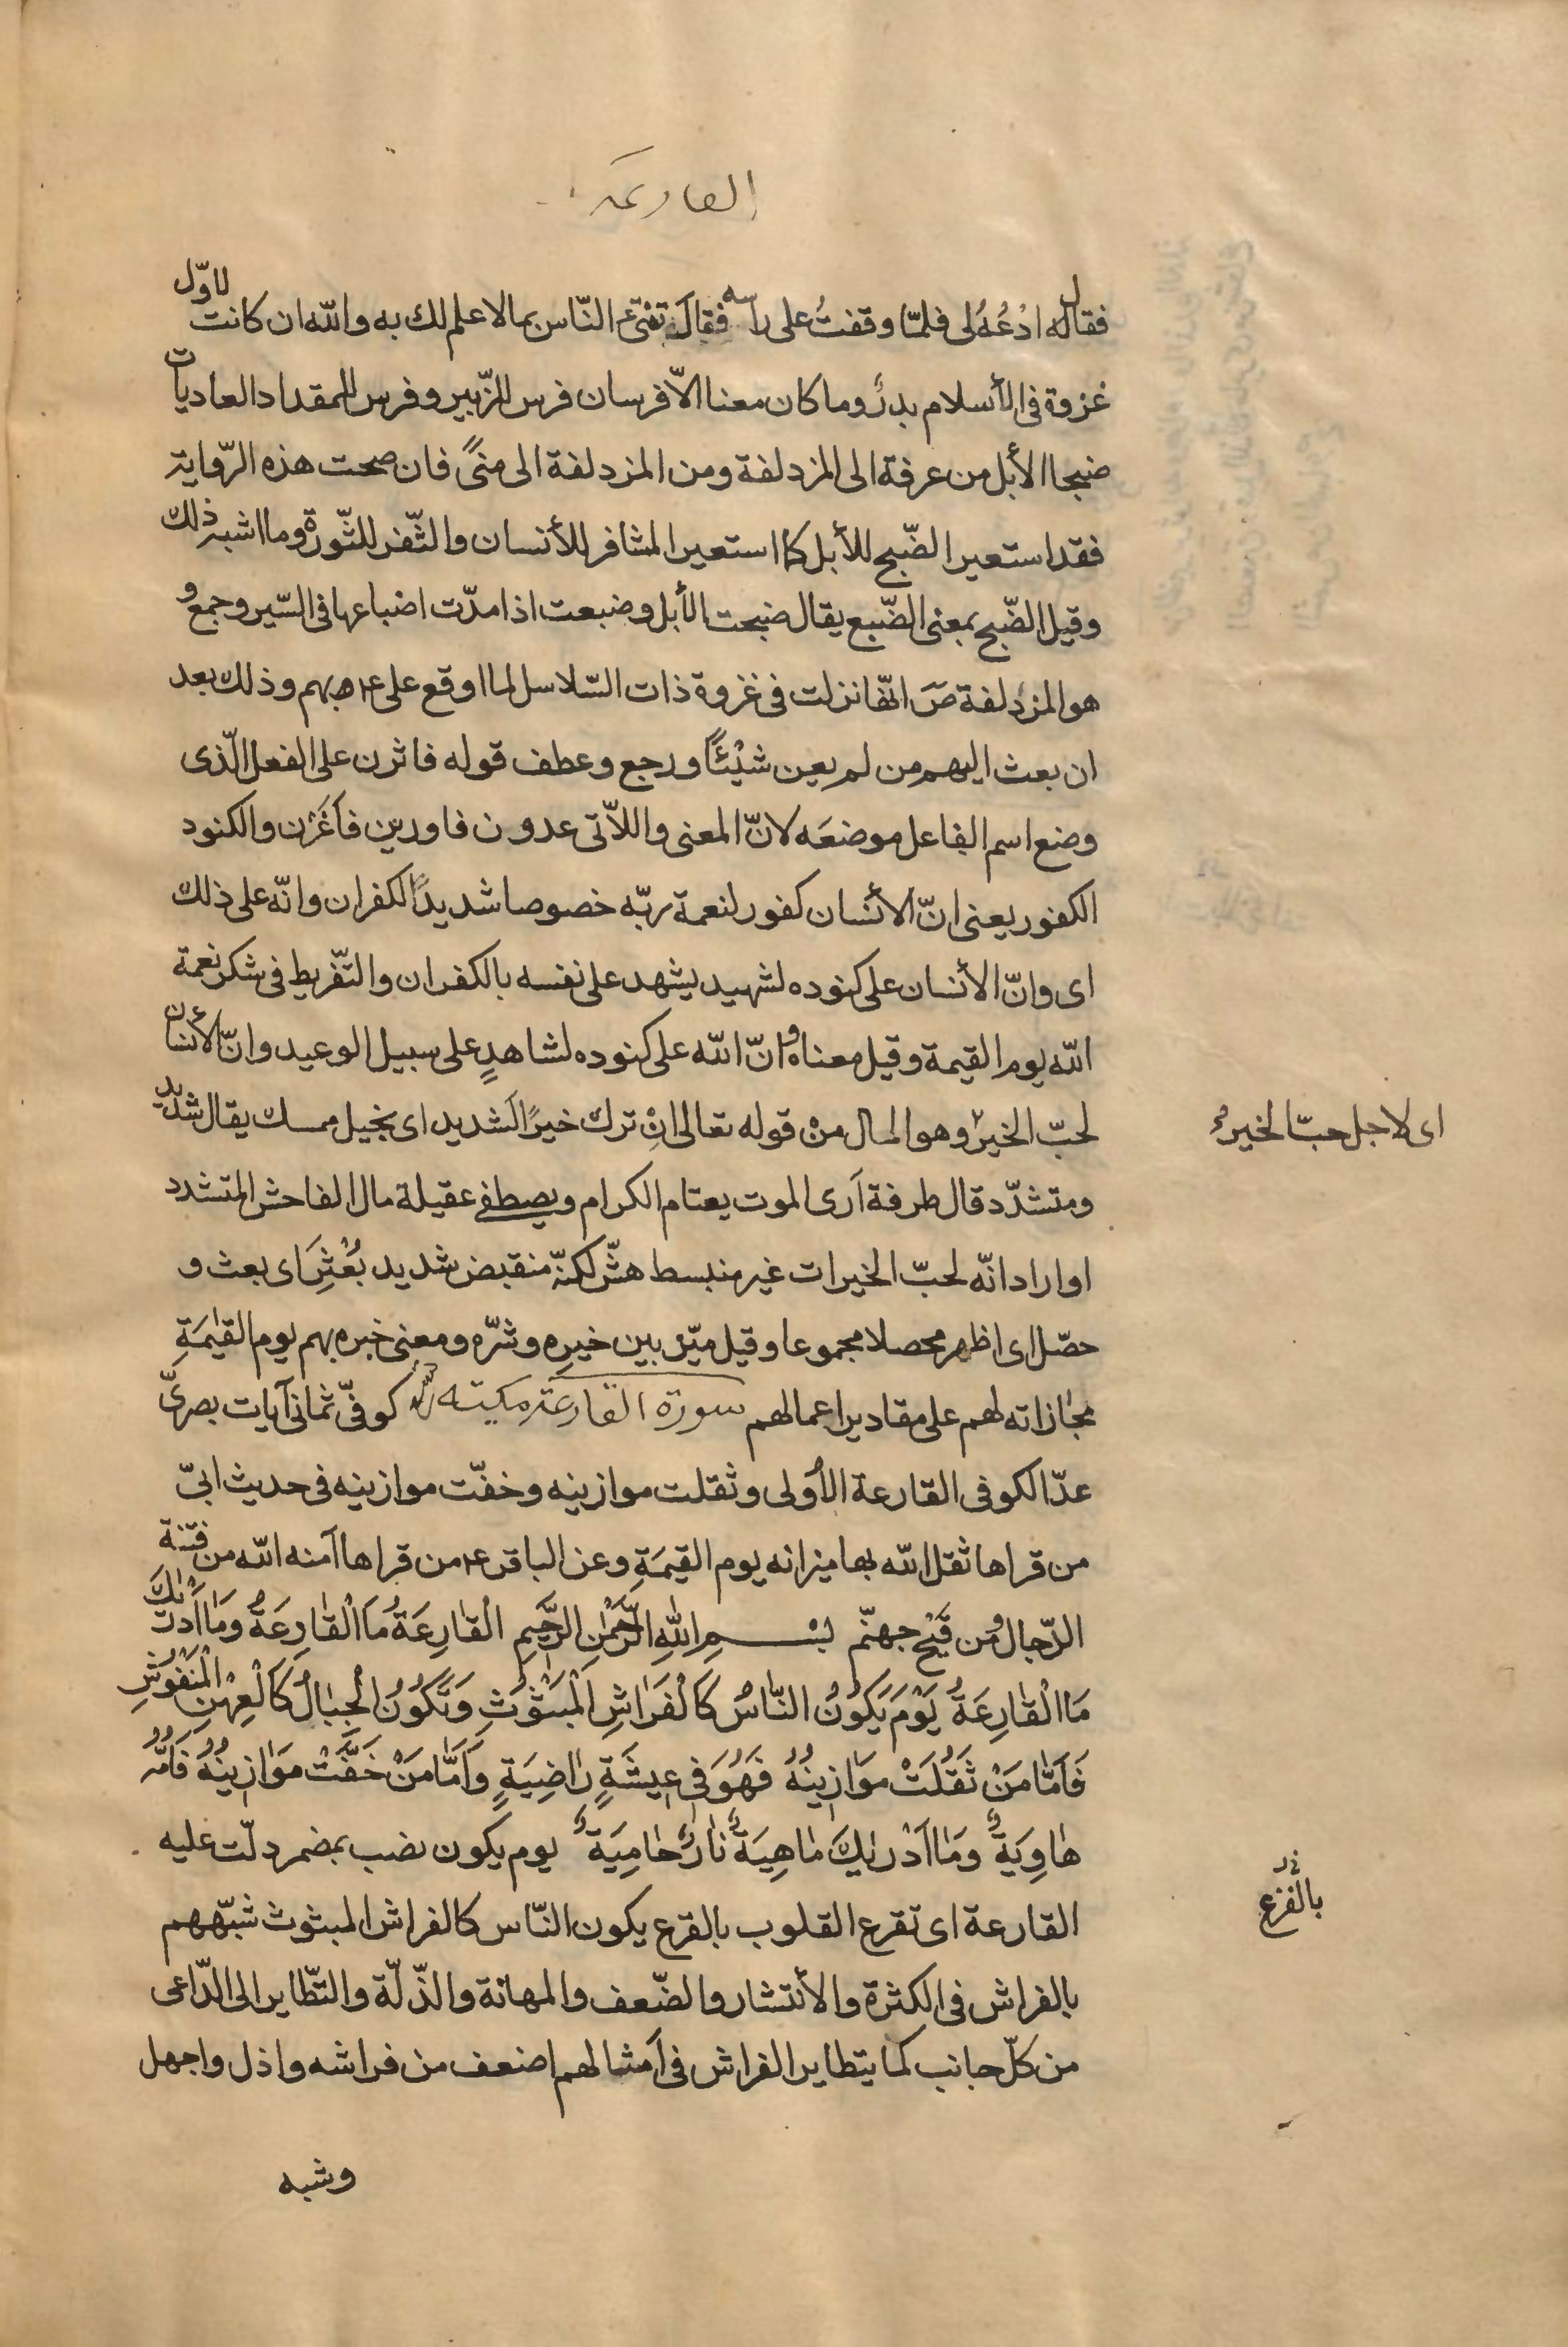 القارعة
فقال له ادْعُهُ لى فلمّا وقفتُ على راسه فقال تفتى النّاس بمالا علم لك به والله ان كانت لاوّل
غزوة فى الأسلام بدرٌ وما كان معنا الّا فرسان فرس للزّبير وفرس للمقداد العاديات
ضبحا الأبل من عرفة الى المزدلفة ومن المزدلفة الى منىً فان صحت هذه الرّواية
فقد استعير الضّبح للأبل كما استعير المشافر للأنسان والثّفر للثّورة وما اشبه ذلك
وقيل الضّبح بمعنى الضّبع يقال ضبحت الأبل وضبعت اذا مدّت اضباعها فى السّير وجمع و
هو المزدلفة صَ انّها نزلت فى غزوة ذات السّلاسل لما اوقع على ع‍ بهم وذلك بعد
ان بعث اليهم من لم يعن شيْئاً ورجع وعطف قوله فاثرن على الفعل الّذى
وضع اسم الفاعل موضعَه لانّ المعنى واللاّتى عدون فاورين فأَغَرْن والكنود
الكفور يعنى انّ الأنْسان كفور لنعمة ربّه خصوصا شديدًا لكفران وانّه على ذلك
اى وانّ الأنسان على كنوده لشهيد يشهد على نفسه بالكفران والتّفريط فى شكر نعمة
الله يوم القيمة وقيل معناه وانّ الله على كنوده لشاهدٍ على سبيل الوعيد وانّ الأنسان
لحبّ الخير وهو المال منْ قوله تعالى انْ ترك خيرًا لَشديد اى بخيل ممسك يقال شديد
اى لاجل حبّ الخير
ومتشدّد قال طرفة آرى الموت يعتام الكرام ويصطفى عقيلة مال الفاحش المتشدد
او اراد انّه لحبّ الخيرات غير منبسط هشّ لكنّه منقبض شديد بُعْثِرَ اى بعث و
حصّل اى اظهر محصلا مجموعا وقيل ميّز بين خيره وشرّه ومعنى خبره بهم يوم القيٰمَةِ
مجازاته لهم على مقادير اعمالهم سورة القارعة مكيّة كوفىّ ثمانى آيات بصرىّ
عدّ الكوفى القارعة الأولى وثقلت موازينه وخفّت موازينه فى حديث ابىّ
من قراها ثقل الله بها ميزانه يوم القيمَةِ وعن الباقر ع‍ من قراها آمنه الله من فتنة
الدّجال ومن قَيْح جهنّم بسْمِ اللهِ الرَّحْمٰنِ الرَّحيٖمِ اَلْقٰارِعَةُ مَا الْقٰارِعَةُ وَمٰا اَدْرٰيكَ
مَا الْقٰارِعَةُ يَوْمَ يَكُونُ النّٰاسُ كَالْفَرٰاشِ الْمَبْثُوثِ وَتَكُونُ الْجِبٰالُ كَالْعِهْنِ الْمَنْفُوشِ
فَاَمّٰا مَنْ ثَقُلَتْ مَوٰازيٖنُهُ فَهُوَ فيٖ عيٖشَةٍ رٰاضِيَةٍ وَاَمّٰا مَنْ خَفَّتْ مَوٰازيٖنُهُ فَاُمُّهُ
هٰاوِيَةٌ وَمٰا اَدْرٰيكَ مٰا هِيَةْ نٰارٌ حٰامِيَةٌ يوم يكون نصب بمضمر دلّت عليه
القارعة اى تقرع القلوب بالقرع يكون النّاس كالفراش المبثوث شبّههم
بالفزع
بالفراش فى الكثرة والأنتشار والضّعف والمهانة والذّلّة والتّطاير الى الدّاعى
من كلّ جانب كما يتطاير الفراش فى آمثالهم اضعف من فراشه واذل واجهل
وشبه